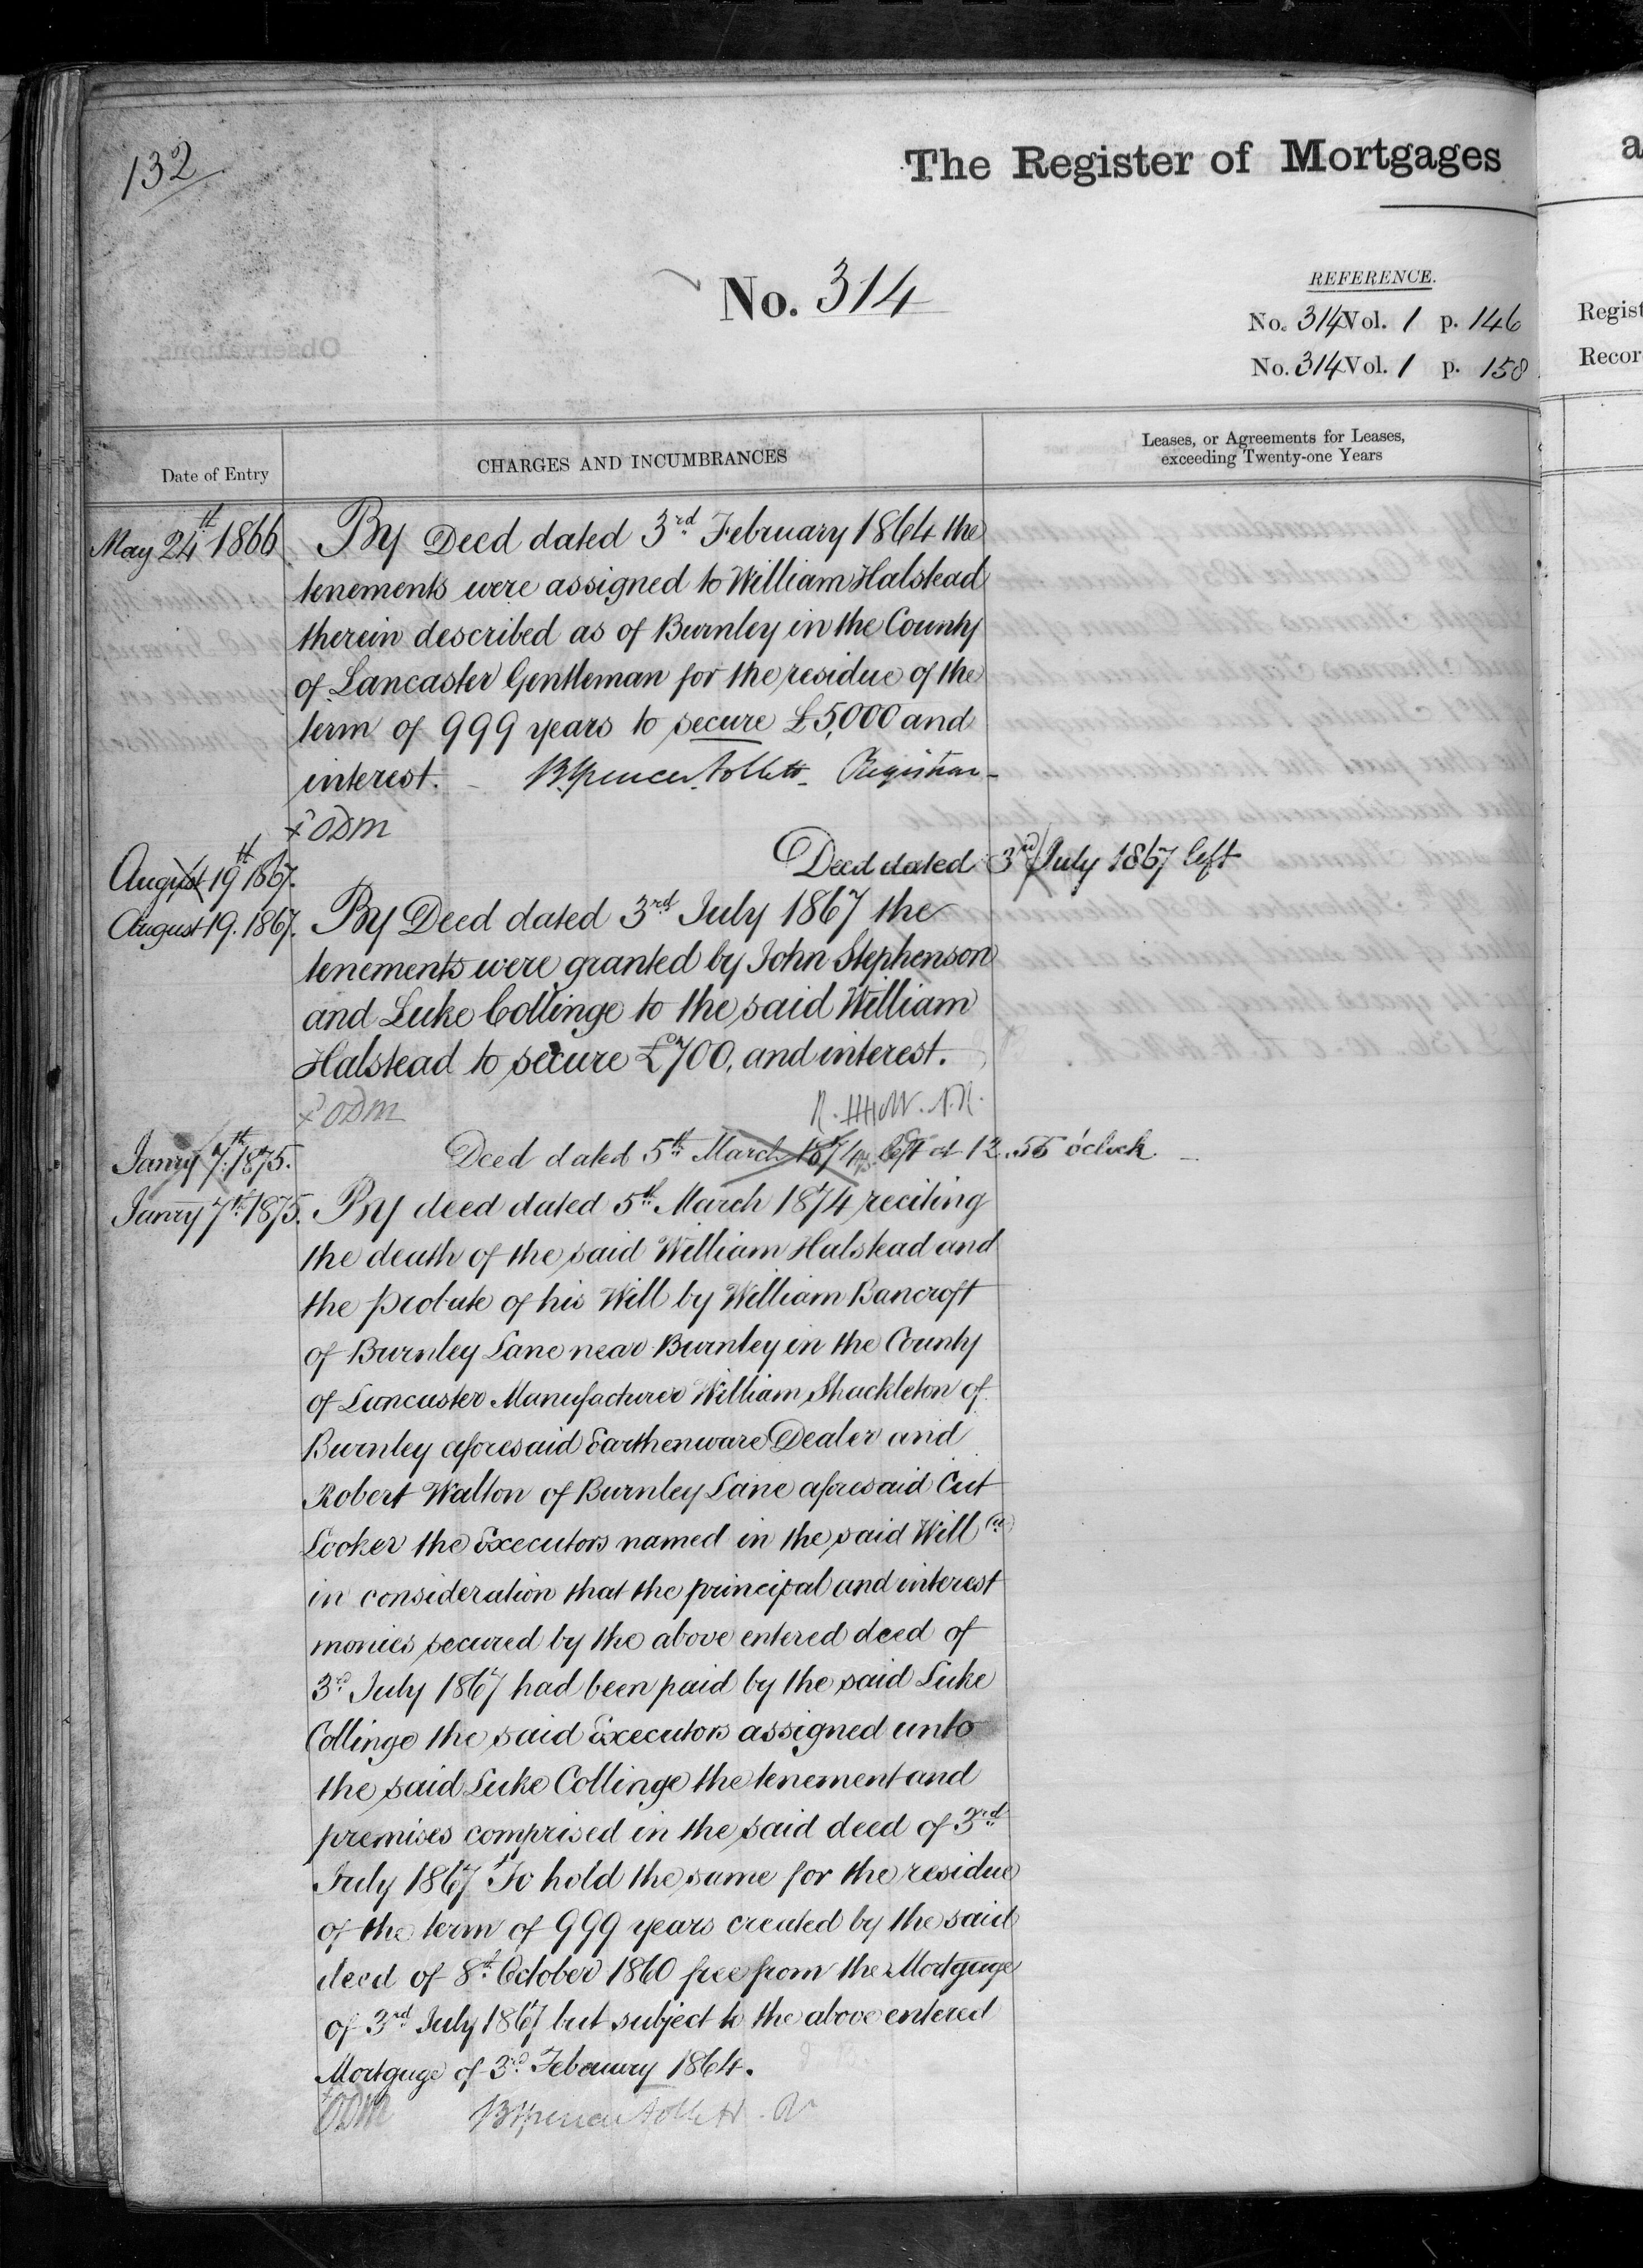 132
The Register of Mortgages
No. 314
REFERENCE.
No. 314 Vol. 1 p. 146
No. 314 Vol. 1 p. 158
Regist
Recor
Observations.
Date of Entry
CHARGES AND INCUMBRANCES
Leases, or Agreements for Leases,
exceeding Twenty-one Years
May 24th 1866 By Deed dated 3rd February 1864 the
tenements were assigned to William Halstead
therein described as of Burnley in the County
of Lancaster Gentleman for the residue of the
term of 999 years to secure £5,000 and
interest. BSpencer Follett Registrar
ODM
August 19th 1867. Deed dated 3rd July 1867 left
August 19. 1867. By Deed dated 3rd July 1867 the
tenements were granted by John Stephenson
and Luke Collinge to the said William
Halstead to secure £700, and interest.
ODM
Janry 7th 1875. Deed dated 5th March 1874 left at 12.55 o'clock
Janry 7th 1875. By deed dated 5th March 1874 reciting
the death of the said William Halstead and
the probate of his Will by William Bancroft
of Burnley Lane near Burnley in the County
of Lancaster Manufacturer William Shackleton of
Burnley aforesaid Earthenware Dealer and
Robert Walton of Burnley Lane aforesaid Cut
Looker the Executors named in the said Will
in consideration that the principal and interest
monies secured by the above entered deed of
3rd July 1867 had been paid by the said Luke
Collinge the said Executors assigned unto
the said Luke Collinge the tenement and
premises comprised in the said deed of 3rd
July 1867 To hold the same for the residue
of the term of 999 years created by the said
deed of 8th October 1860 free from the Mortgage
of 3rd July 1867 but subject to the above entered
Mortgage of 3rd February 1864.
ODM BSpencer Follett R